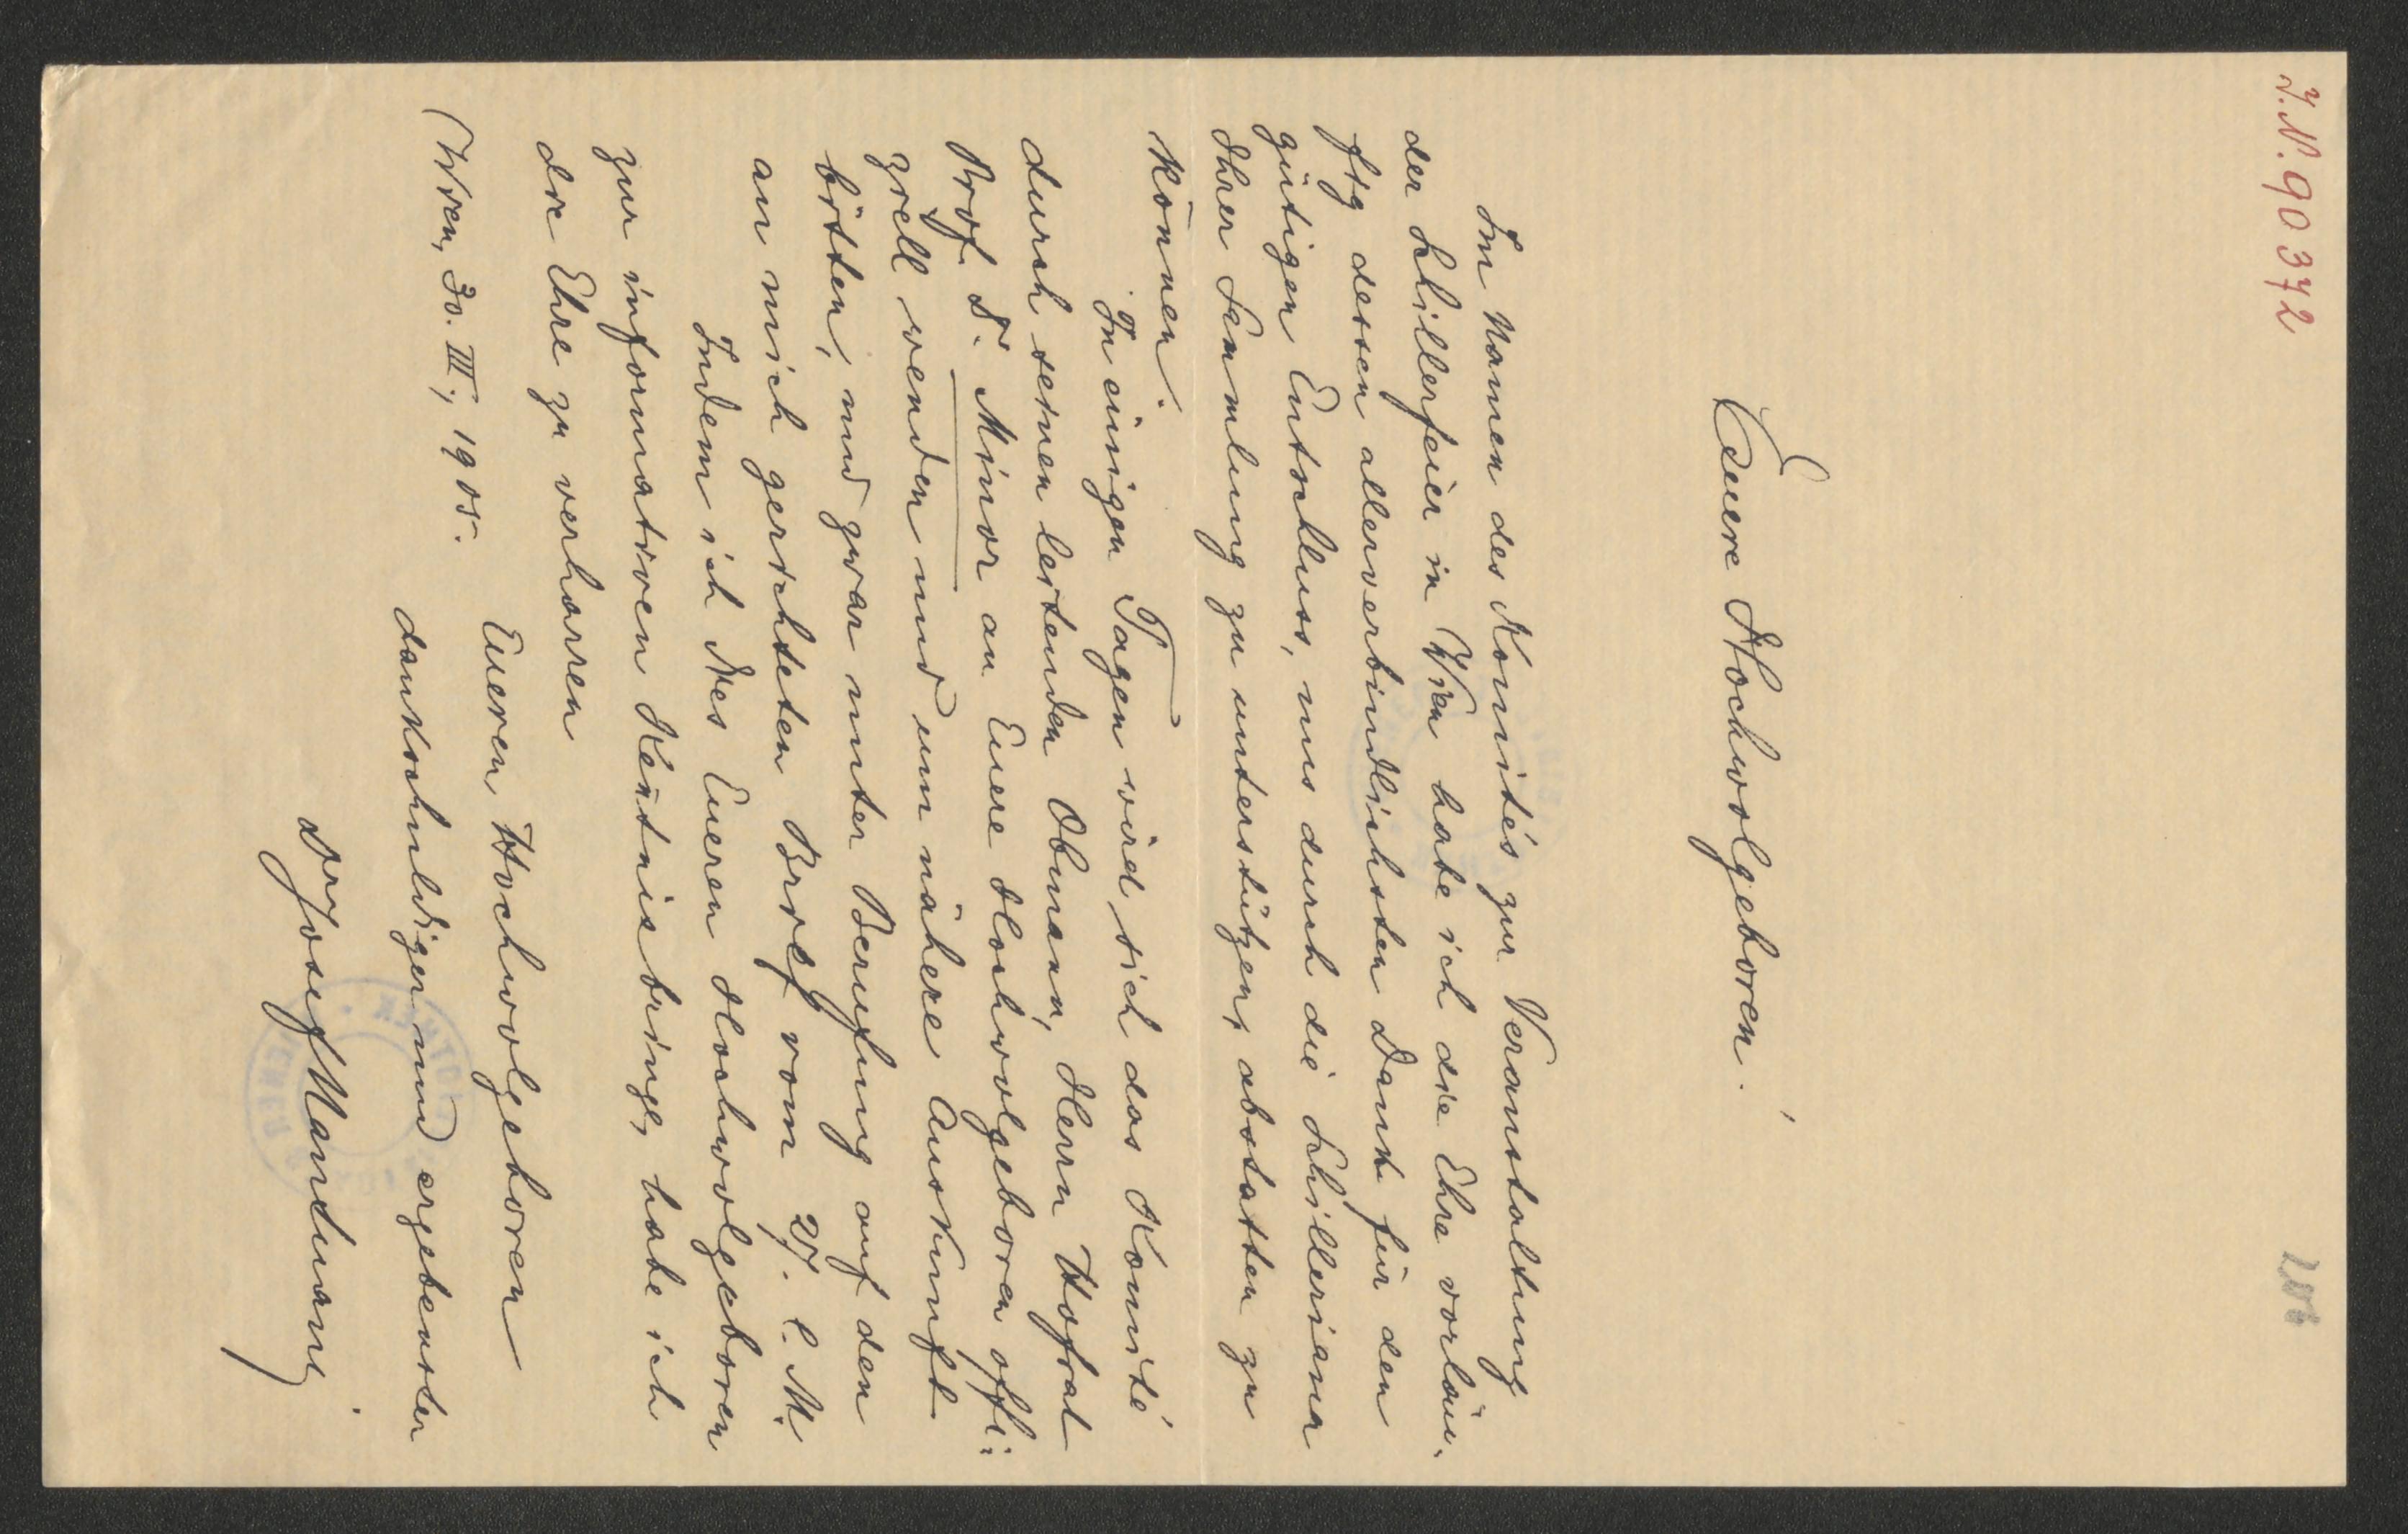 J.N. 90372
Euere Hochwolgeboren!
Im Namen des Komités zur Veranstaltung
der Schillerfeier in Wien habe ich die Ehre vorläu-
fig dessen allerverbindlichsten Dank für den
gütigen Entschluss, uns durch die Schilleriana
Ihrer Sammlung zu unterstützen, abstatten zu
können.
In einigen Tagen wird sich das Komité
durch seinen leitenden Obmann, Herrn Hofrat
Prof. D. Minor an Euere Hochwolgeboren offi-
ziell wenden und um nähere Auskunft
bitten, und zwar unter Berufung auf den
an mich gerichteten Brief vom 27. l. M.
Indem ich dies Eueren Hochwolgeboren
zur informativen Kentnis bringe, habe ich
die Ehre zu verharren
Eueren Hochwolgeboren
Wien, 30. III, 1905.
dankschuldigen und ergebenster
Dr Josef Mantuani